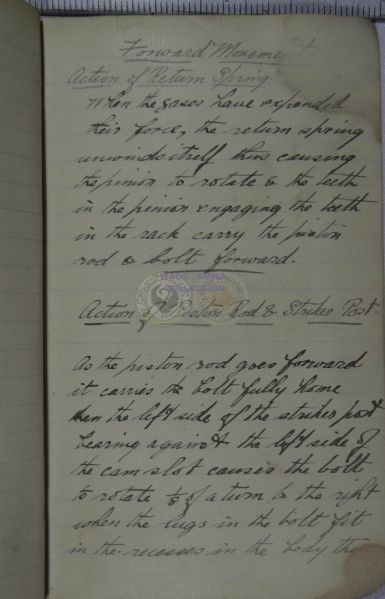 Forward Movement
Action of Return Spring.
When the gases have expended
their force, the return spring
unwinds itself thus causing
the pinion to rotate & the teeth
in the pinion engaging the teeth
in the rack carry the piston
rod & bolt forward.
WAGS ARMY
COLLECTION
Action of Piston Rod & Striker Post.
As the piston rod goes forward
it carries the bolt fully home
then the left side of the striker post
bearing against the left side of
the cam slot causes the bolt
to rotate of a turn to the right
when the lugs in the bolt fit
in the recesses in the body the